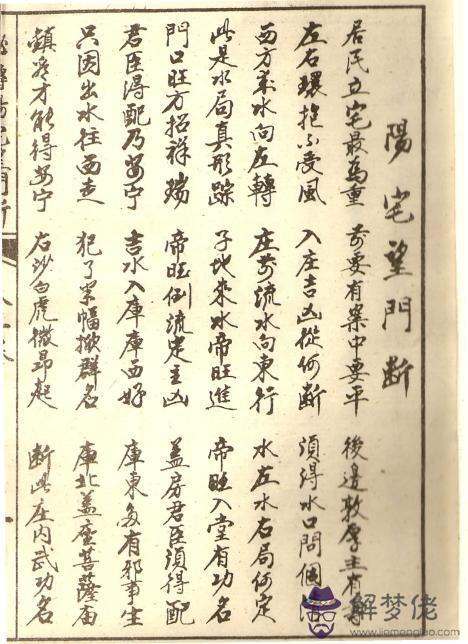 陽宅望門断
居民立宅最為重 前要有案中要平 後邊敦厚主有
左右環抱不受風 入庄吉凶從何断 須得水口問個
西方来水向左轉 庄前流水向東行 水左水右局何定
此是水局真形踪 子地来水帝旺進 帝旺入堂有功名
門口旺方招祥瑞 帝旺倒流定主凶 盖房君臣須得配
君臣得配乃安宁 吉水入庫庫西好 庫東多有邪事生
只因出水往西走 犯了 幅 群名 庫北盖座菩薩庙
鎮 才能得安宁 右沙白虎微昂起 断此庄内武功名
解梦佬